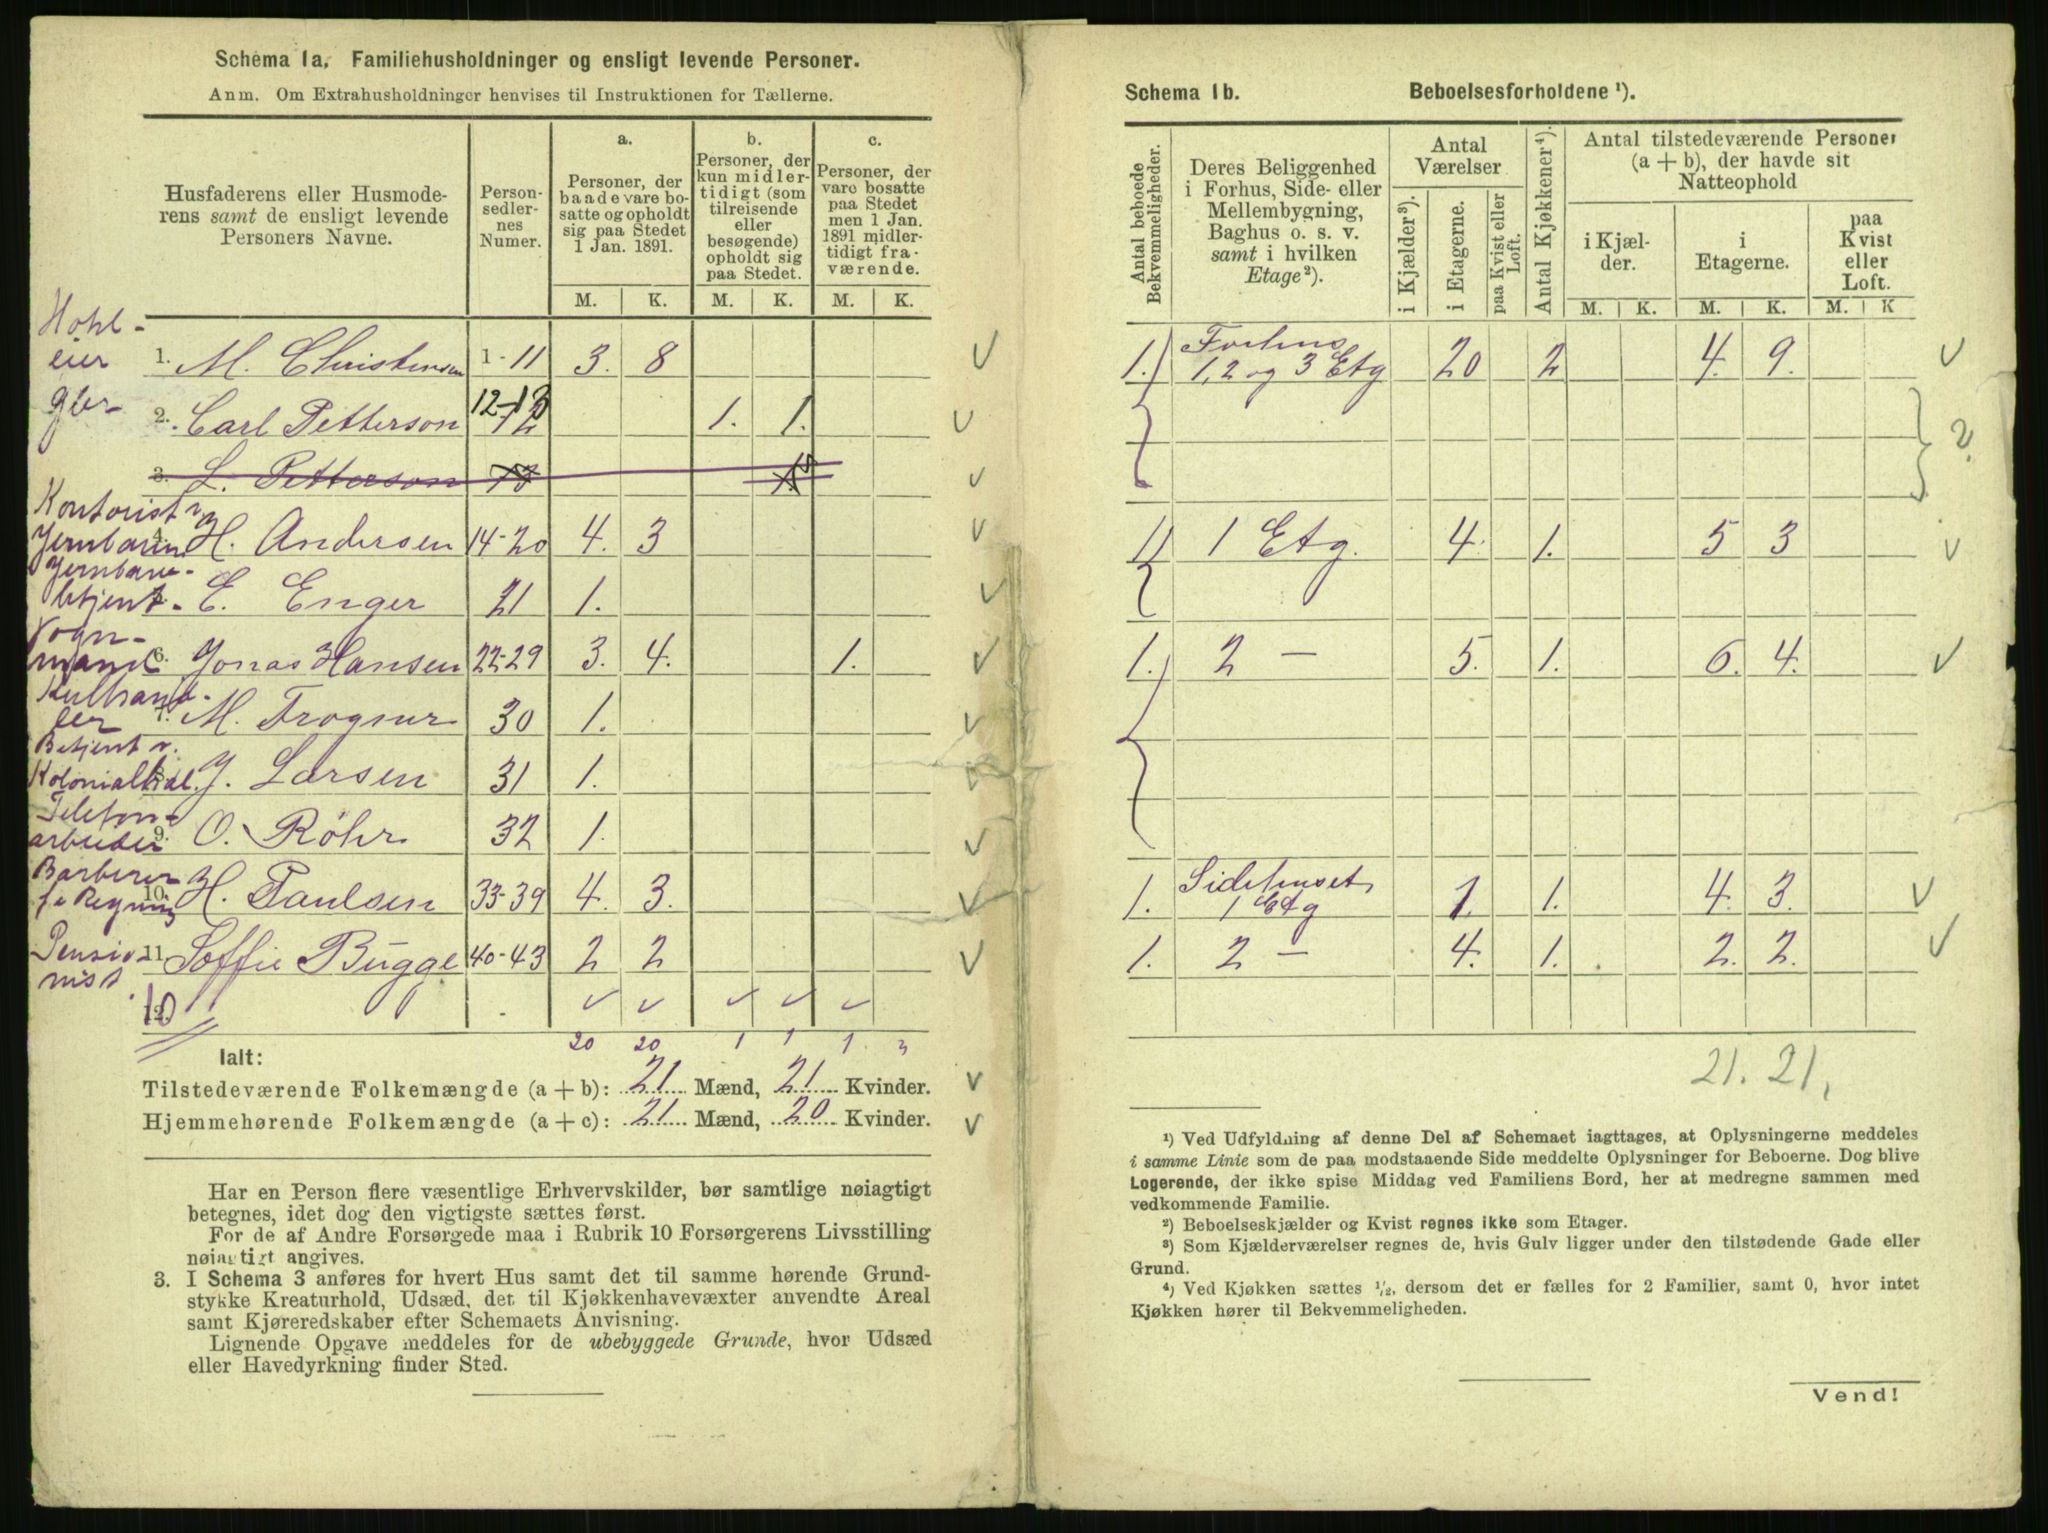 Schema 1a. Familiehusholdninger og ensligt levende Personer.
Anm. Om Extrahusholdninger henvises til Instruktionen for Tællerne.
Husfaderens eller Husmoderens samt de ensligt levende Personers Navne.
Personsedlernes Numer.
a. Personer, der baade vare bosatte og opholdt sig paa Stedet 1 Jan. 1891.
b. Personer, der kun midlertidigt (som tilreisende eller besøgende) opholdt sig paa Stedet.
c. Personer, der vare bosatte paa Stedet men 1 Jan. 1891 midlertidigt fraværende.
M. K. M. K. M. K.
1. M. Christensen 1-11 3. 8
2. Carl Petterson 12-13 1. 1.
3. L. Petterson
Kontorist v. Jernbanen 4. H. Andersen 14-20 4. 3
Jernbanebetjent. E. Enger 21 1.
Vognmand 6. Jonas Hansen 22-29 3. 4. 1.
Kulhandler 7. M. Trogner 30 1.
Betjent v. Kolonialhdl. 8. J. Larsen 31 1.
Telefonarbeider 9. O. Röhr 32 1.
Barberer f. e Regning 10. H. Paulsen 33-39 4. 3.
Pensionist. 11. Soffie Bügge 40-43 2 2
12. 10
20 20 1 1 1.
Ialt:
Tilstedeværende Folkemængde (a + b): 21 Mænd, 21 Kvinder.
Hjemmehørende Folkemængde (a + c): 21 Mænd, 20 Kvinder.
Har en Person flere væsentlige Erhvervskilder, bør samtlige nøiagtigt
betegnes, idet dog den vigtigste sættes først.
For de af Andre Forsørgede maa i Rubrik 10 Forsørgerens Livsstilling
nøiagtigt angives.
3. I Schema 3 anføres for hvert Hus samt det til samme hørende Grund-
stykke Kreaturhold, Udsæd, det til Kjøkkenhavevæxter anvendte Areal
samt Kjøreredskaber efter Schemaets Anvisning.
Lignende Opgave meddeles for de ubebyggede Grunde, hvor Udsæd
eller Havedyrkning finder Sted.
Schema 1b. Beboelsesforholdene ¹).
Antal beboede Bekvemmeligheder.
Deres Beliggenhed i Forhus, Side- eller Mellembygning, Baghus o. s. v. samt i hvilken Etage²).
Antal Værelser
i Kjælder³).
i Etagerne.
paa Kvist eller Loft.
Antal Kjøkkener⁴).
Antal tilstedeværende Personer (a + b), der havde sit Natteophold
i Kjælder.
i Etagerne.
paa Kvist eller Loft.
M. K. M. K. M. K
1. Forhus 1, 2 og 3 Etg 20 2 4. 9.
?
1 1 Etg. 4. 1. 5 3
1. 2 — 5. 1. 6. 4.
1. Sidehuset 1 Etg 1 1. 4. 3.
1. 2 — 4. 1. 2. 2.
21. 21.
¹) Ved Udfyldning af denne Del af Schemaet iagttages, at Oplysningerne meddeles
i samme Linie som de paa modstaaende Side meddelte Oplysninger for Beboerne. Dog blive
Logerende, der ikke spise Middag ved Familiens Bord, her at medregne sammen med
vedkommende Familie.
²) Beboelseskjælder og Kvist regnes ikke som Etager.
³) Som Kjælderværelser regnes de, hvis Gulv ligger under den tilstødende Gade eller
Grund.
⁴) Ved Kjøkken sættes ½, dersom det er fælles for 2 Familier, samt 0, hvor intet
Kjøkken hører til Bekvemmeligheden.
Vend!